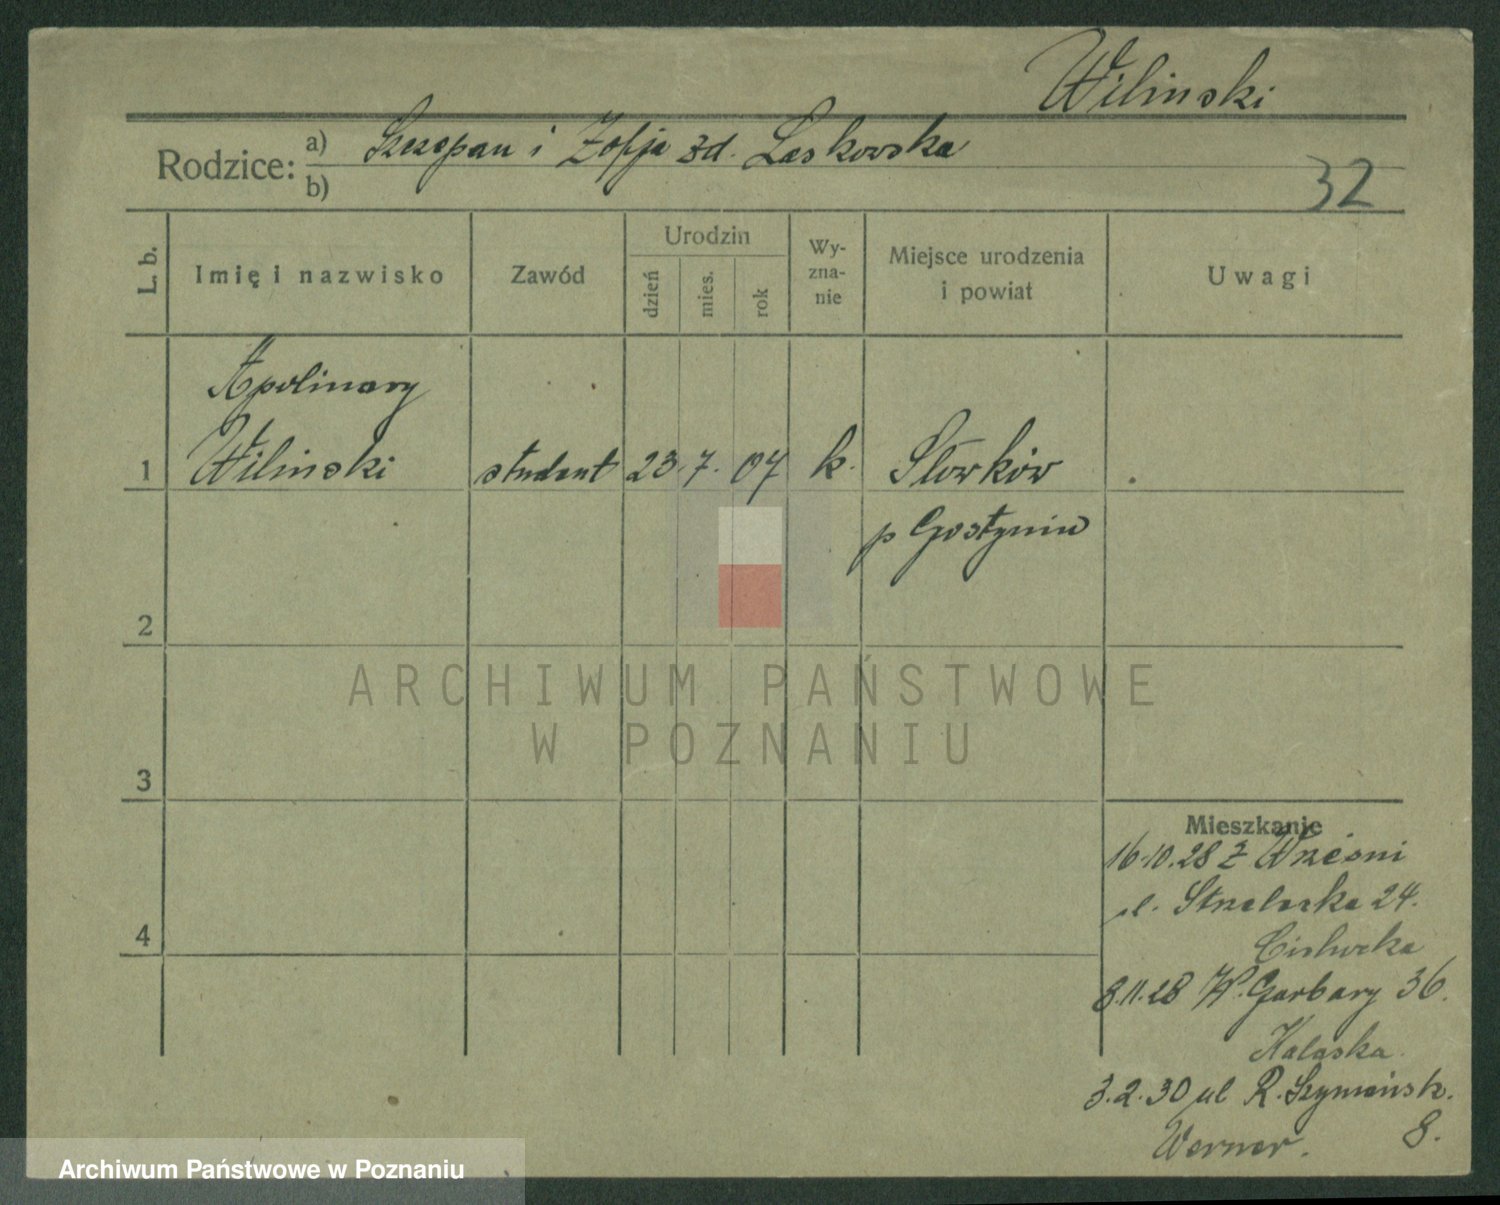 Wilinski
Rodzice: a) Szczepan i Zofja zd. Laskowska
b)
32
L. b.
Imię i nazwisko
Zawód
Urodzin
dzień
mies.
rok
Wy-
zna-
nie
Miejsce urodzenia
i powiat
Uwagi
Apolinary
1 Wilinski student 23. 7. 07 k.
p Gostyniu
2
3
4
Mieszkanie
16.10.28 z Wrześni
ul. Strzelecka 24.
8.11.28 W. Garbary 36.
3.2.30 ul R. Szymańsk.
Werner. 8.
ARCHIWUM PAŃSTWOWE
W POZNANIU
Archiwum Państwowe w Poznaniu